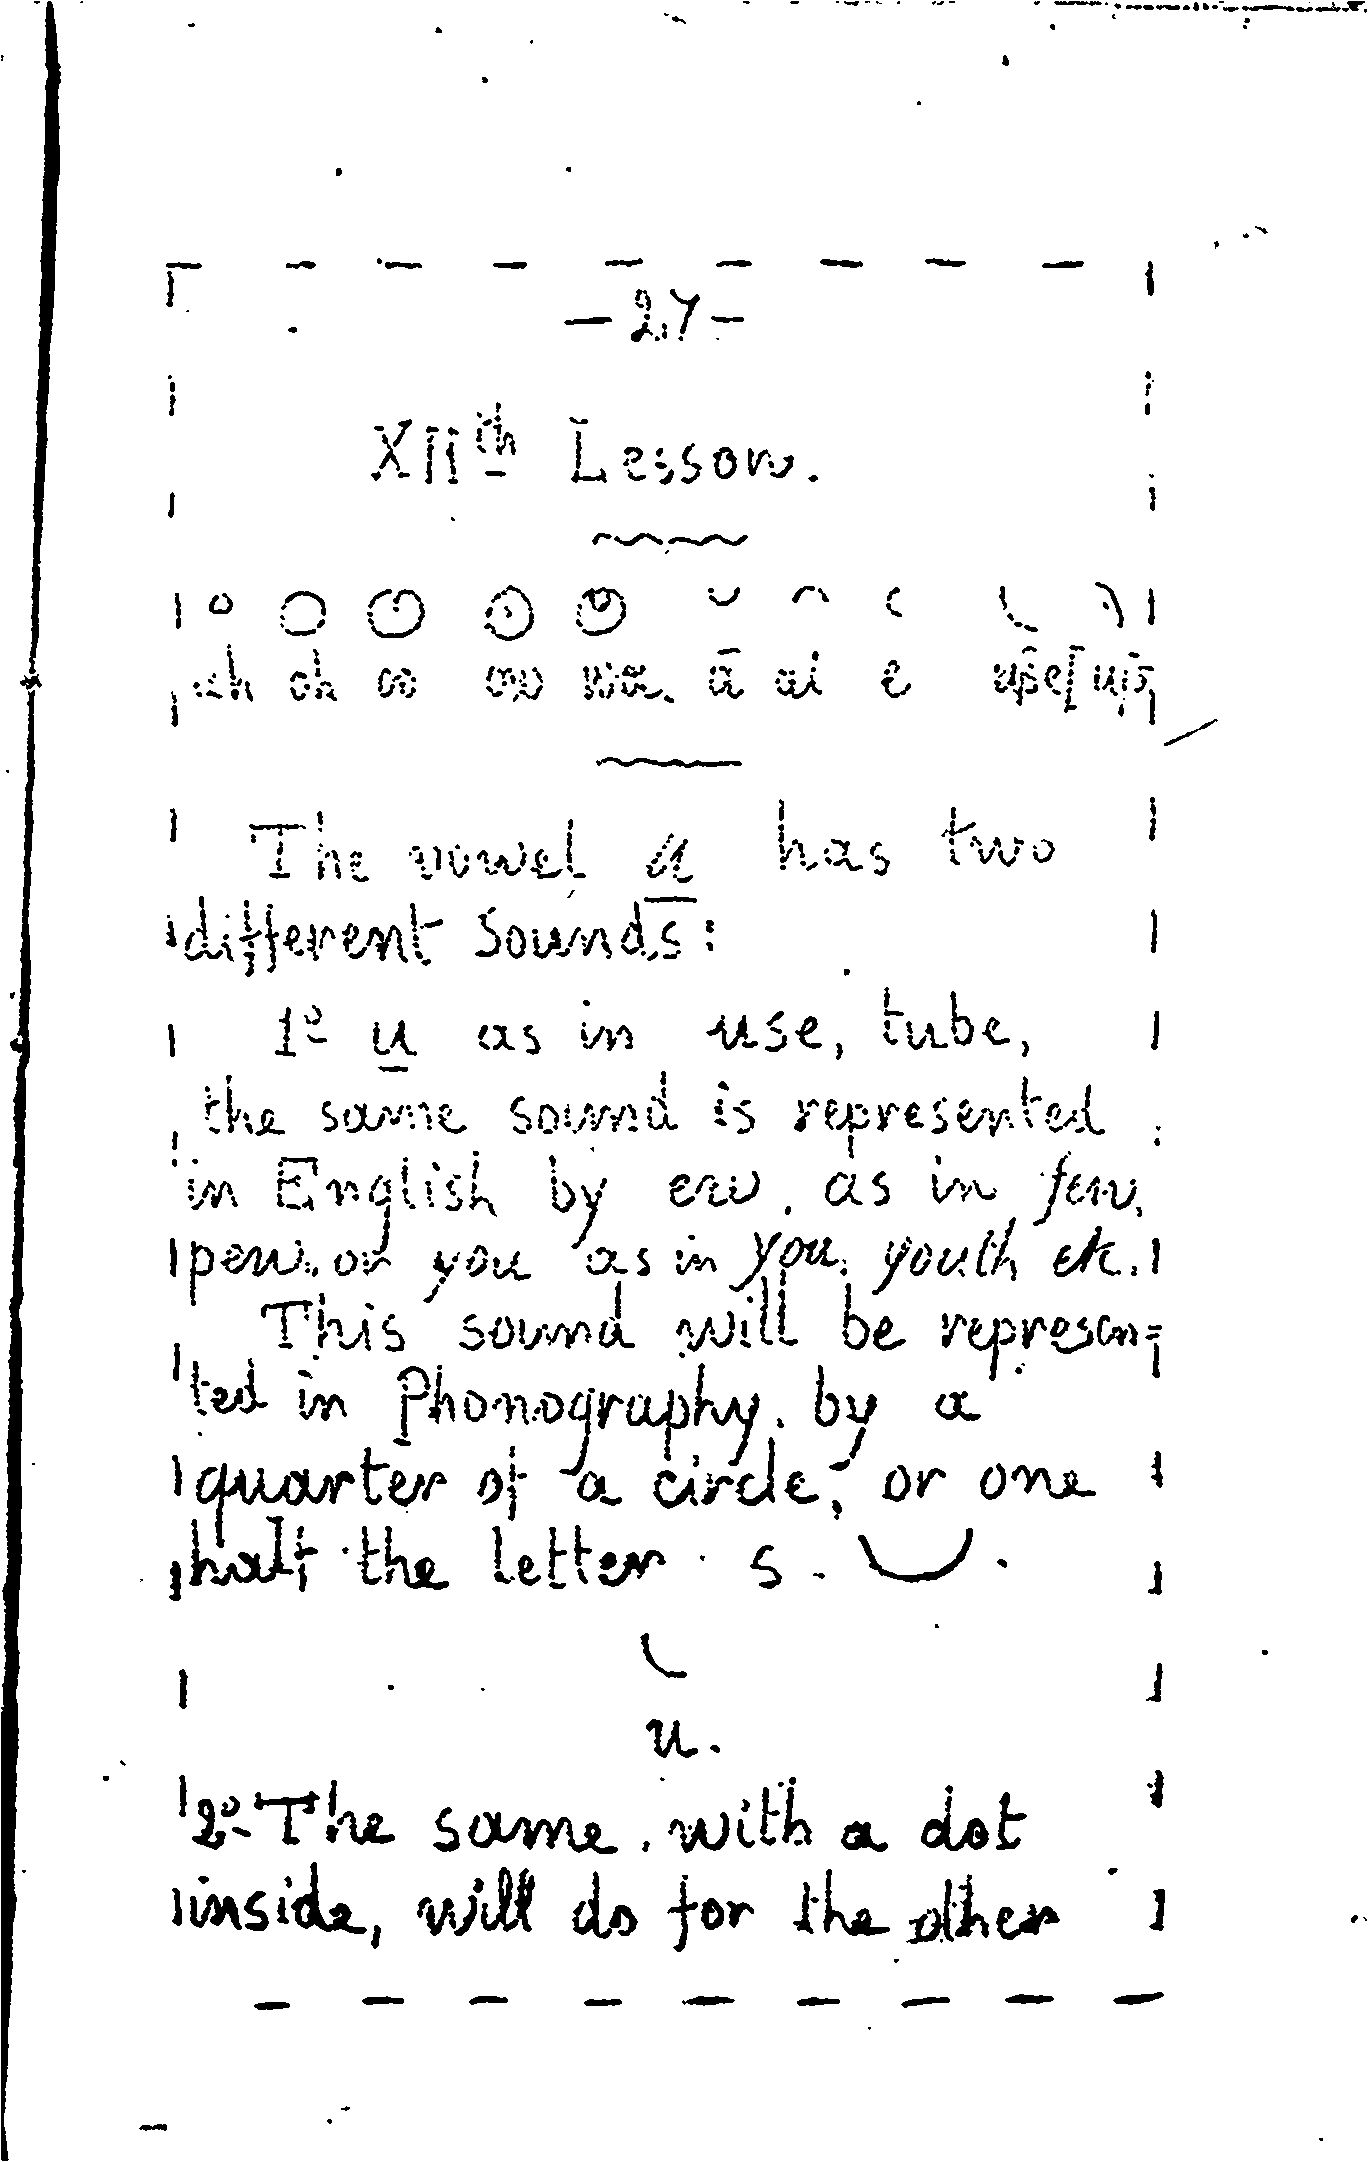 - 27 -
XIIth Lesson.
ah oh oo ow wa. ā ai e use up
The vowel u has two
different sounds:
1º u as in use, tube,
the same sound is represented
in English by ew, as in few,
pew, or you as in you, youth etc.
This sound will be represen=
ted in Phonography, by a
quarter of a circle, or one
half the letter s.
u.
2º- The same, with a dot
inside, will do for the other